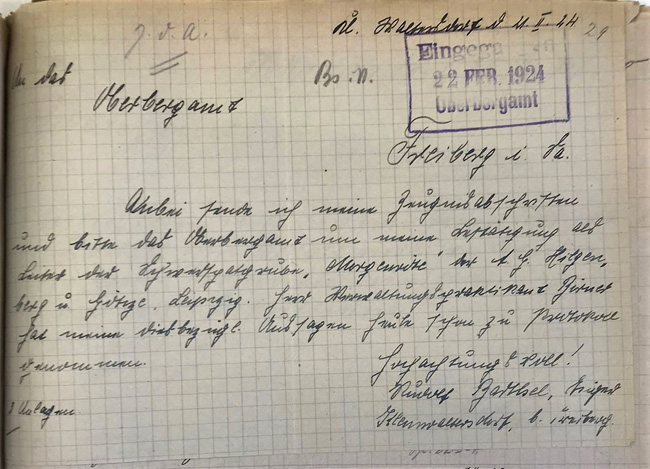 Kl. Waltersdorf d 21. II. 24
29
Z. d. A.
Eingegangen
22 FEB. 1924
Oberbergamt
An das
Bs. V.
Oberbergamt
Freiberg i. Sa.
Anbei sende ich meine Zeugnisabschriften
und bitte das Oberbergamt um meine Bestätigung als
Leiter der Schwerspatgrube, „Morgenröte" der A G Hilgen,
berg u. Götze, Leipzig. Herr Verwaltungspraktikant Birner
hat meine diesbezügl. Aussagen heute schon zu Protokoll
genommen.
Hochachtungsvoll!
Rudolf Barthel, Steiger
3 Anlagen
Kleinwaltersdorf, b. Freiberg